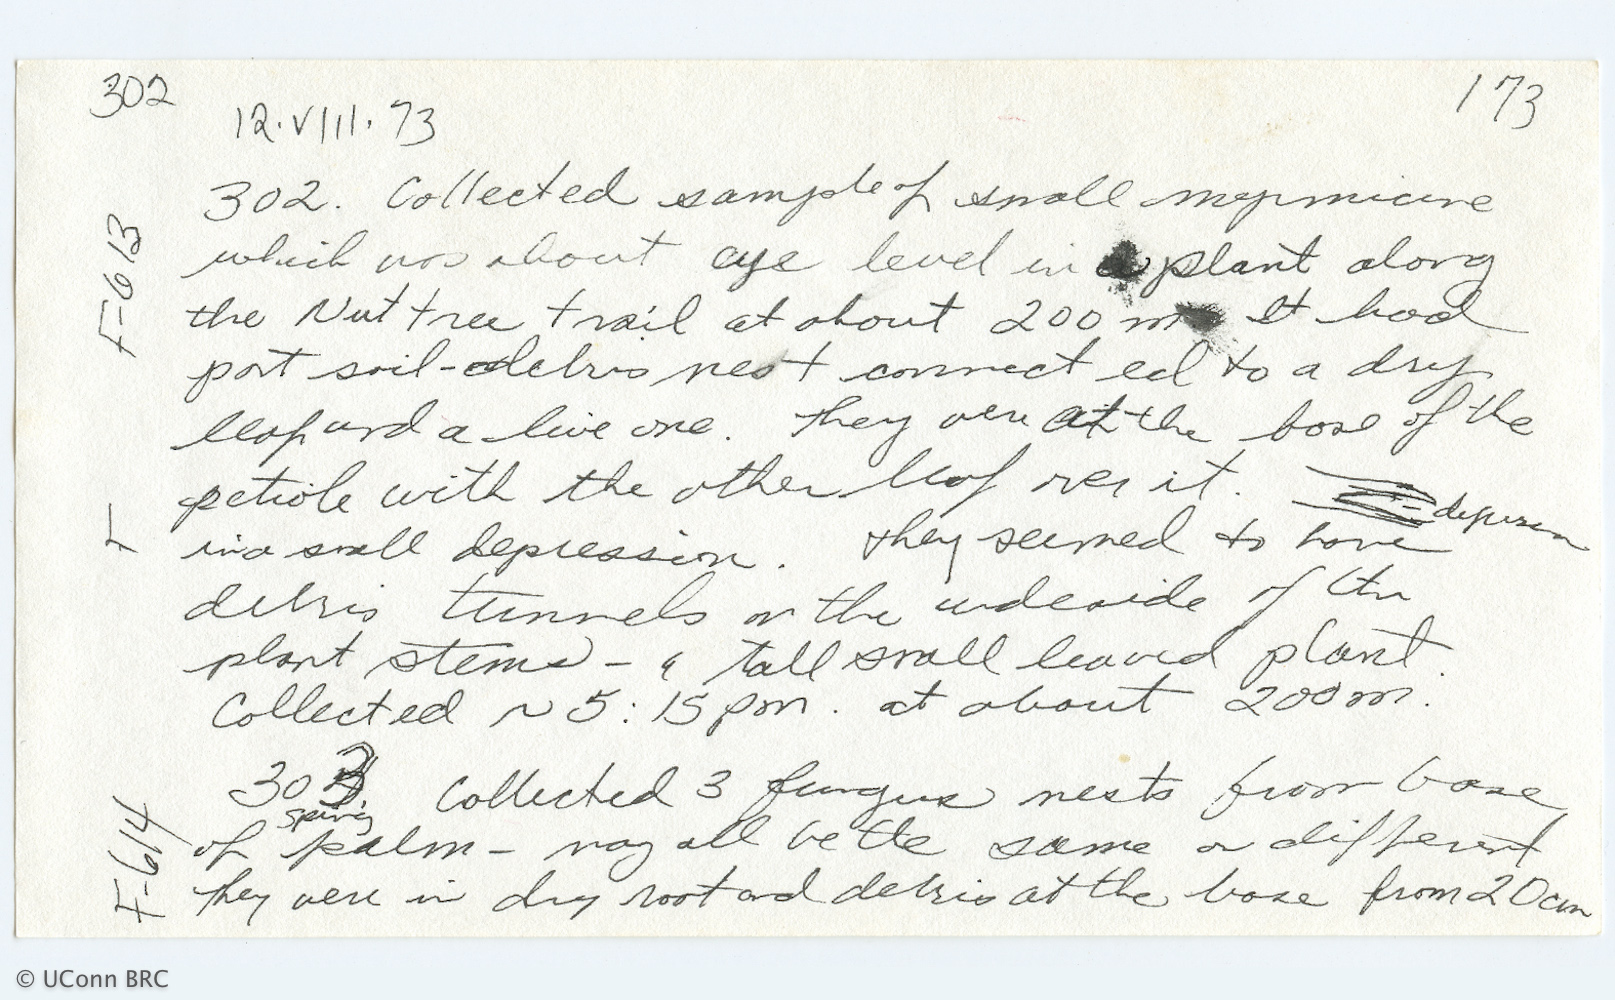 302
173
12.VIII.73
302. Collected sample of small myrmicine
which was about eye level in a plant along
the Nut tree trail at about 200 m It had
part soil-debris nest connected to a dry
leaf and a live one. They were at the base of the
petiole with the other leaf over it.
depression
in a small depression. They seemed to have
debris tunnels on the underside of the
plant stems - a tall small leaved plant.
Collected ~5:15 pm. at about 200 m.
303 Collected 3 fungus nests from base
spiny
of palm - may all be the same or different
They were in dry root and debris at the base from 20 cm
F-613
T
F-614
© UConn BRC